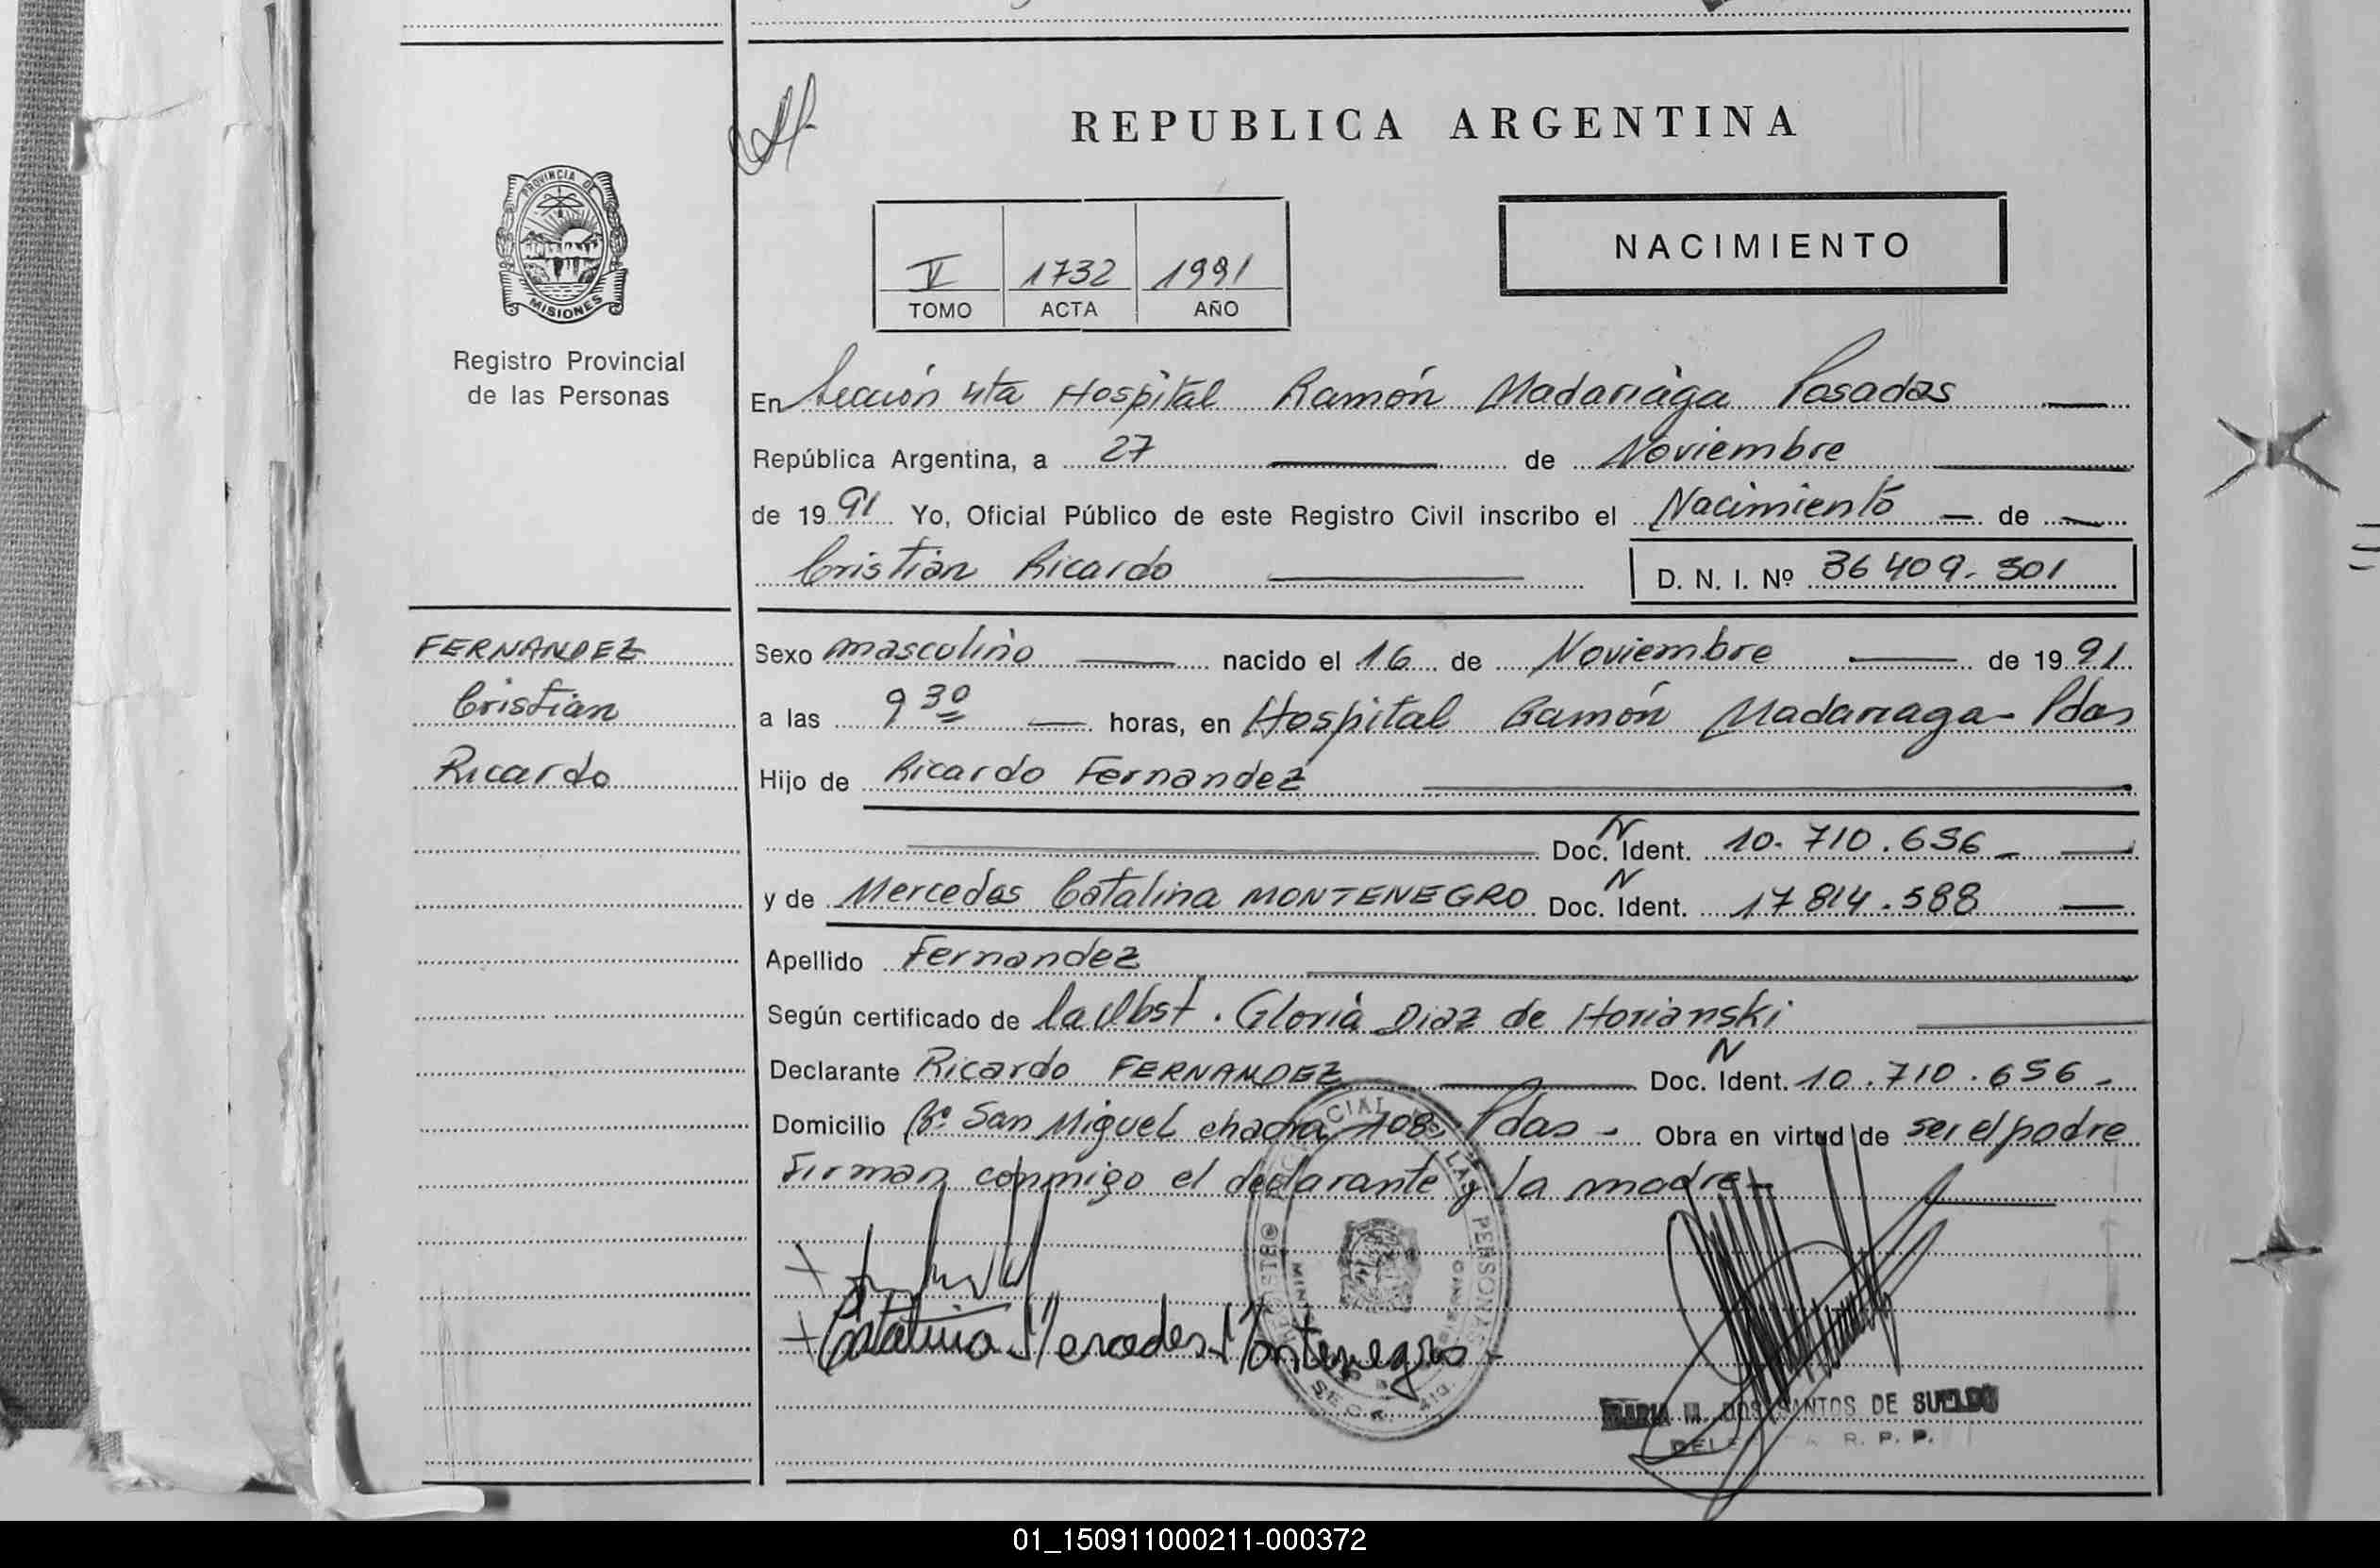 REPUBLICA ARGENTINA
PROVINCIA DE
MISIONES
Registro Provincial
de las Personas
V 1732 1991
TOMO ACTA AÑO
NACIMIENTO
En Sección 4ta Hospital Ramón Madariaga Posadas
República Argentina, a 27 de Noviembre
de 1991 Yo, Oficial Público de este Registro Civil inscribo el Nacimiento de
Cristian Ricardo D. N. I. Nº 36 409. 501
FERNANDEZ
Cristian
Ricardo
Sexo masculino nacido el 16 de Noviembre de 1991
a las 9 30 horas, en Hospital Ramón Madariaga - Pdas
Hijo de Ricardo Fernandez
Doc. N Ident. 10. 710. 656 -
y de Mercedes Catalina MONTENEGRO Doc. N Ident. 17 814. 588
Apellido Fernandez
Según certificado de la Obst. Gloria Diaz de Horianski
Declarante Ricardo FERNANDEZ Doc. N Ident. 10. 710. 656 -
Domicilio Bº San Miguel chacra 108 Pdas - Obra en virtud de ser el padre
Firman conmigo el declarante y la madre -
Catalina Mercedes Montenegro
MARIA M. DOS SANTOS DE SUELDO
R. P. P.
01_150911000211-000372